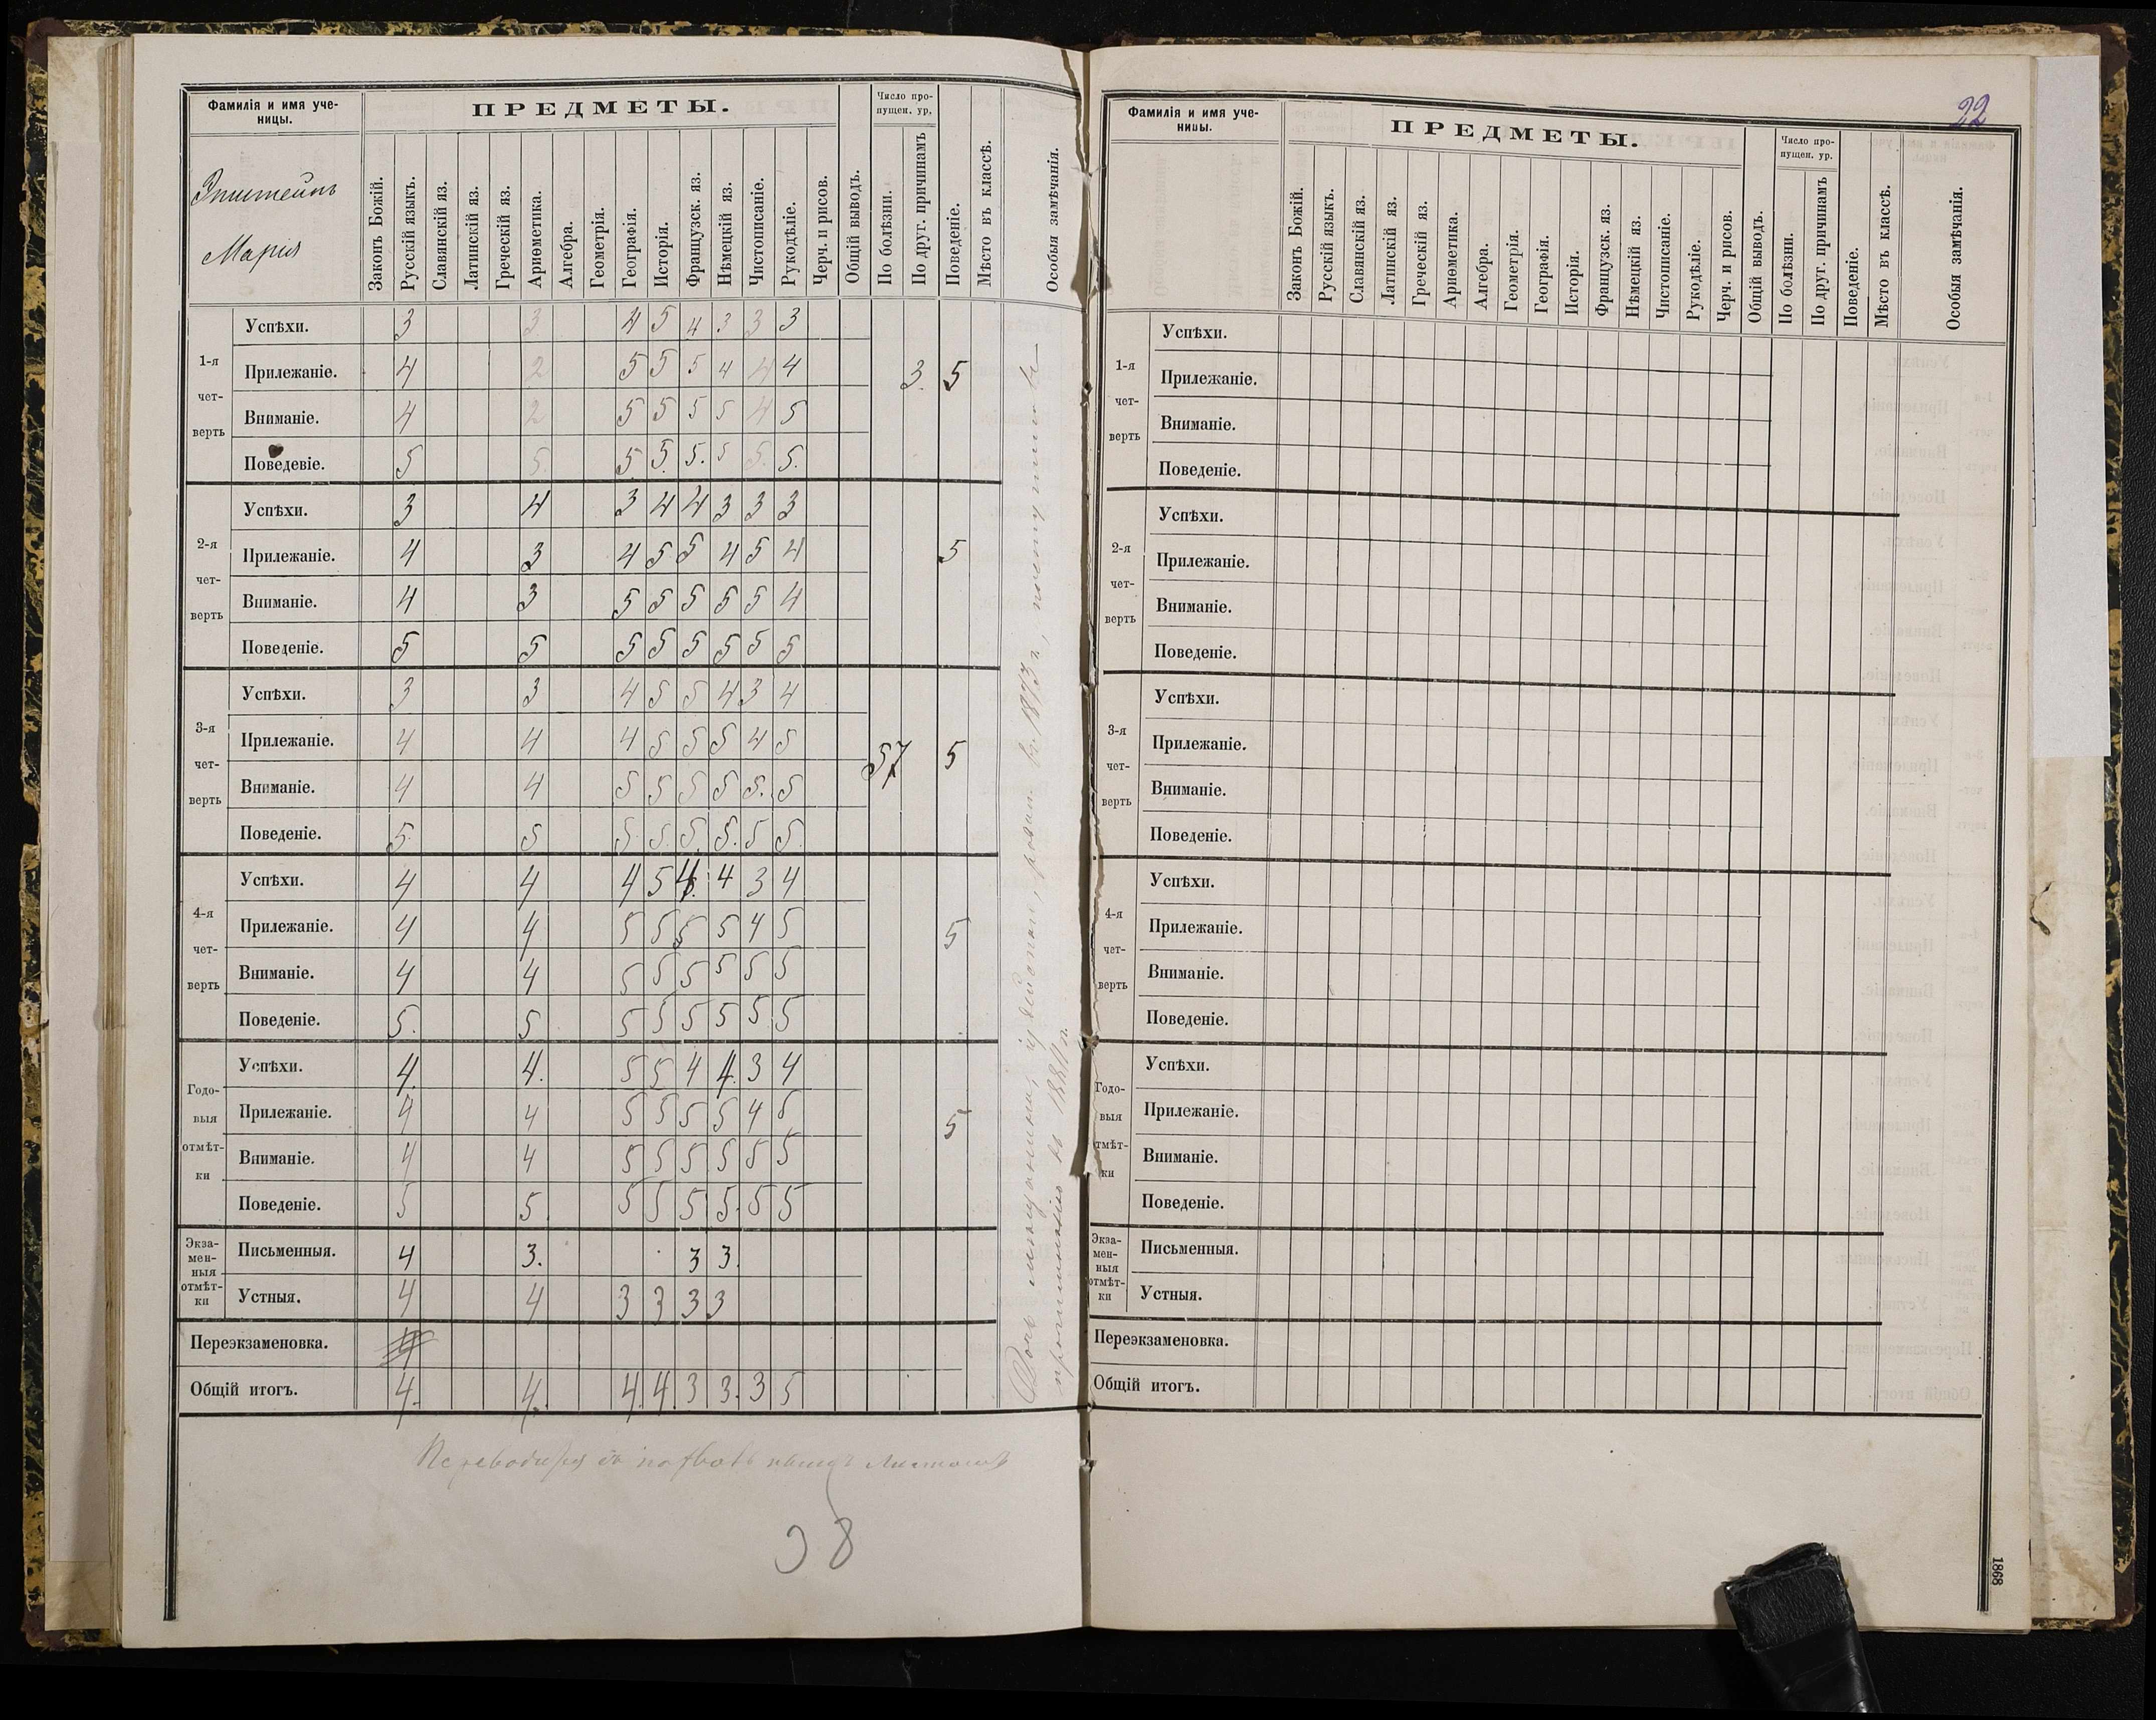 Фамилія и имя уче-
ницы.
ПРЕДМЕТЫ.
Число про-
пущен. ур.
Эпштейнъ
Марія
Законъ Божій.
Русскій языкъ.
Славянскій яз.
Латинскій яз.
Греческій яз.
Ариѳметика.
Алгебра.
Геометрія.
Географія.
Исторія.
Французск. яз.
Нѣмецкій яз.
Чистописаніе.
Рукодѣліе.
Черч. и рисов.
Общій выводъ.
По болѣзни.
По друг. причинамъ
Поведеніе.
Мѣсто въ классѣ.
Особыя замѣчанія.
1-я чет-верть
Успѣхи. 3 3 4 5 4 3 3 3
Прилежаніе. 4 2 5 5 5 4 4 4 3. 5
Вниманіе. 4 2 5 5 5 5 4 5
Поведеніе. 5 5. 5 5. 5. 5 5. 5.
2-я чет-верть
Успѣхи. 3 4 3 4 4 3 3 3
Прилежаніе. 4 3 4 5 5 4 5 4 5
Вниманіе. 4 3 5 5 5 5 5 4
Поведеніе. 5 5 5 5 5 5 5 5
3-я чет-верть
Успѣхи. 3 3 4 5 5 4 3 4
Прилежаніе. 4 4 4 5 5 5 4 5 57 5
Вниманіе. 4 4 5 5 5 5 5. 5
Поведеніе. 5. 5 5. 5. 5. 5. 5 5.
4-я чет-верть
Успѣхи. 4 4 4 5 4. 4 3 4
Прилежаніе. 4 4 5 5 5 5 4 5 5
Вниманіе. 4 4 5 5 5 5 5 5
Поведеніе. 5. 5 5 5 5 5 5 5
Годо-выя отмѣт-ки
Успѣхи. 4. 4. 5 5 4 4. 3 4
Прилежаніе. 4 4 5 5 5 5 4 5 5
Вниманіе. 4 4 5 5 5 5 5 5
Поведеніе. 5 5. 5 5 5 5. 5 5
Экза-мен-ныя отмѣт-ки
Письменныя. 4 3. 3 3.
Устныя. 4 4 3 3 3 3
Переэкзаменовка. 4
Общій итогъ. 4. 4. 4. 4. 3 3. 3 5
1873 г., поступила въ
1880 г.
38
22
Фамилія и имя уче-
ницы.
ПРЕДМЕТЫ.
Число про-
пущен. ур.
Законъ Божій.
Русскій языкъ.
Славянскій яз.
Латинскій яз.
Греческій яз.
Ариѳметика.
Алгебра.
Геометрія.
Географія.
Исторія.
Французск. яз.
Нѣмецкій яз.
Чистописаніе.
Рукодѣліе.
Черч. и рисов.
Общій выводъ.
По болѣзни.
По друг. причинамъ
Поведеніе.
Мѣсто въ классѣ.
Особыя замѣчанія.
1-я чет-верть
Успѣхи.
Прилежаніе.
Вниманіе.
Поведеніе.
2-я чет-верть
Успѣхи.
Прилежаніе.
Вниманіе.
Поведеніе.
3-я чет-верть
Успѣхи.
Прилежаніе.
Вниманіе.
Поведеніе.
4-я чет-верть
Успѣхи.
Прилежаніе.
Вниманіе.
Поведеніе.
Годо-выя отмѣт-ки
Успѣхи.
Прилежаніе.
Вниманіе.
Поведеніе.
Экза-мен-ныя отмѣт-ки
Письменныя.
Устныя.
Переэкзаменовка.
Общій итогъ.
1868